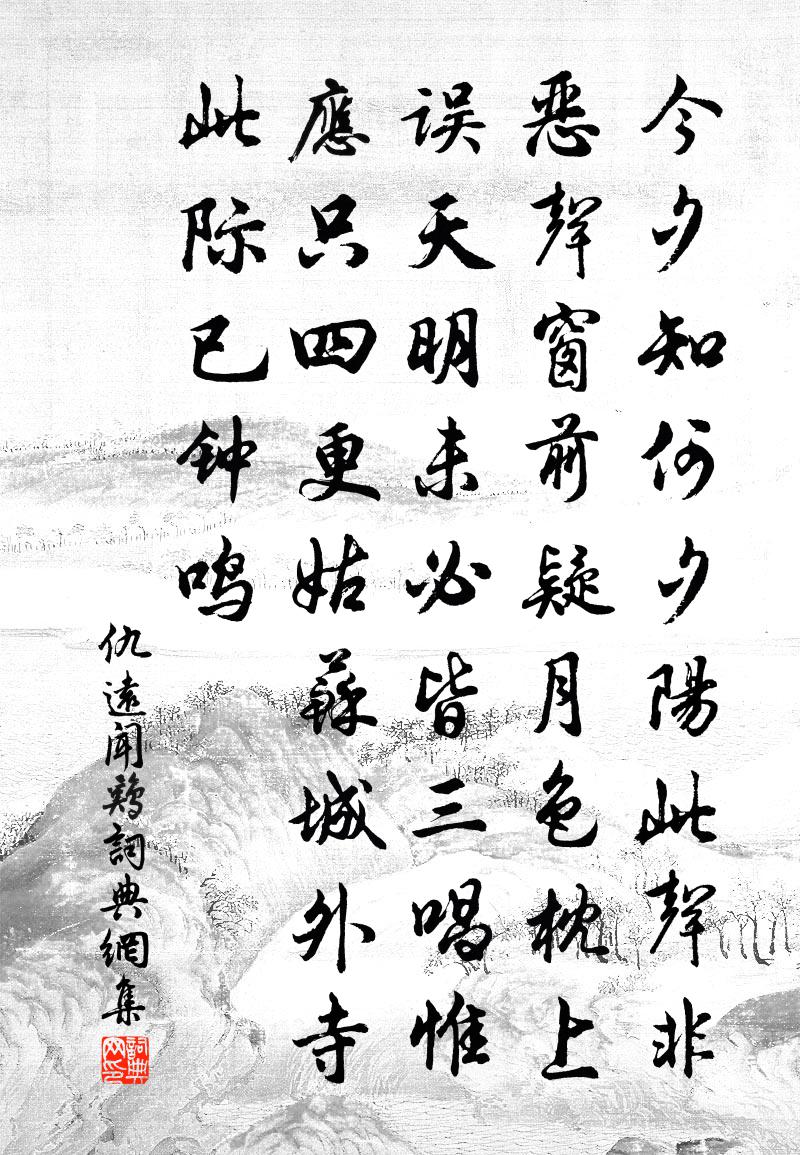 今夕知何夕陽此聲非
恶聲窗前疑月色枕上
误天明未必皆三唱惟
應只四更姑蘇城外寺
此际已钟鸣
仇遠聞鷄詞典網集
詞典网印